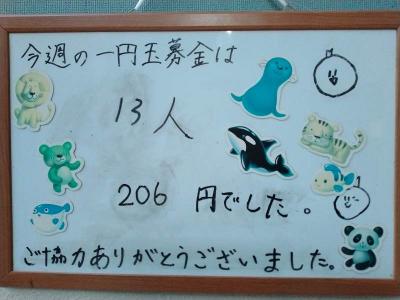 今週の一円玉募金は
13人
206 円でした。
ご協力ありがとうございました。